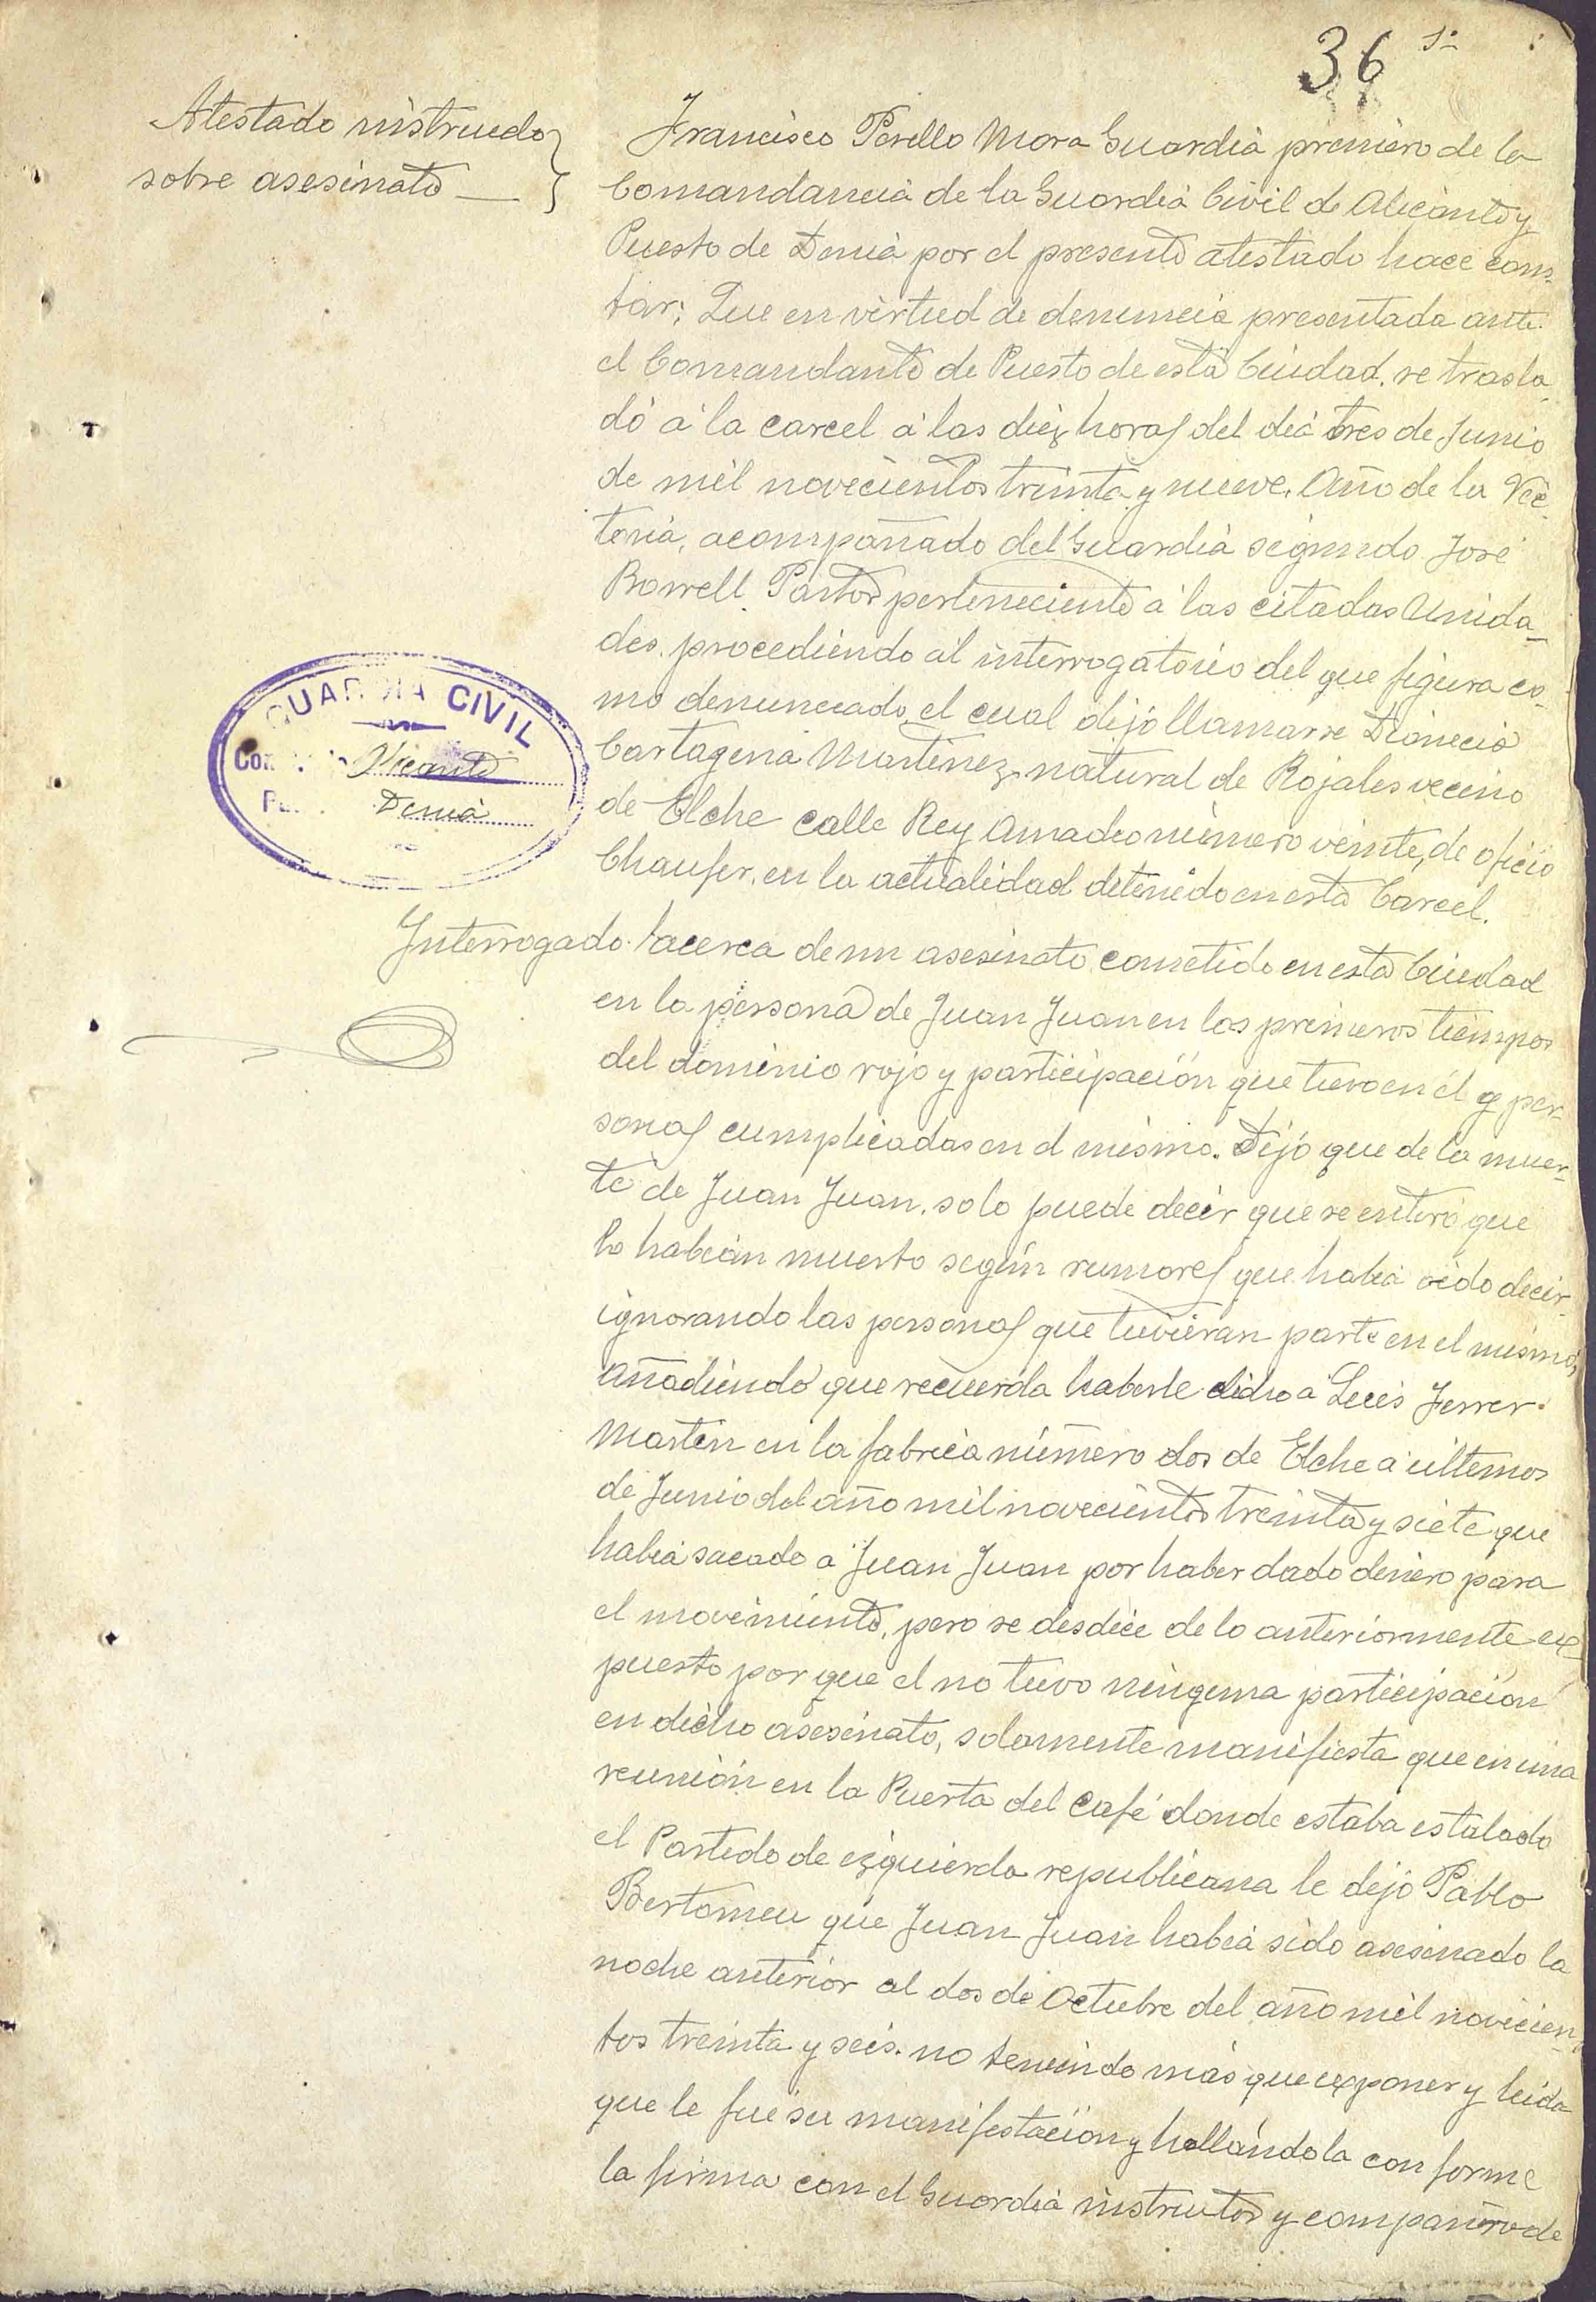 36 1º
Atestado instruido
sobre asesinato —
Francisco Perello Mora Guardia primero de la
Comandancia de la Guardia Civil de Alicante y
Puesto de Denia por el presente atestado hace cons-
tar; Que en virtud de denuncia presentada ante
el Comandante de Puesto de esta Ciudad, se trasla-
dó á la carcel á las diez horas del dia tres de Junio
de mil novecientos treinta y nueve. Año de la Vic-
toria, acompañado del Guardia segundo José
Borrell Pastor perteneciente á las citadas Unida-
des, procediendo al interrogatorio del que figura co-
mo denunciado, el cual dijo llamarse Dionecio
Cartagena Martinez, natural de Rojales vecino
de Elche calle Rey Amadeo número veinte, de oficio
Chaufer, en la actualidad detenido en esta Carcel.
GUARDIA CIVIL
Alicante
Denia
Interrogado acerca de un asesinato cometido en esta Ciudad
en la persona de Juan Juan en los primeros tiempos
del dominio rojo y participación que tuvo en él y per-
sonas cumplicadas en el mismo. Dijó que de la muer-
te de Juan Juan, solo puede decir que se enteró que
lo habian muerto según rumores que habia oido decir
ignorando las personas que tuvieran parte en el mismo,
añadiendo que recuerda haberle dicho a Luis Ferrer
Martin en la fabrica número dos de Elche a últimos
de Junio del año mil novecientos treinta y siete que
habia sacado a Juan Juan por haber dado dinero para
el movimiento, pero se desdice de lo anteriormente ex-
puesto por que el no tuvo ninguna participación
en dicho asesinato, solamente manifiesta que en una
reunión en la Puerta del Café donde estaba estalado
el Partido de ezquierda republicana le dijó Pablo
Bertomeu que Juan Juan habia sido asesinado la
noche anterior al dos de Octubre del año mil novicien-
tos treinta y seis. no teniendo más que exponer y leida
que le fue su manifestación y hallándola conforme
la firma con el Guardia instructor y compañero de